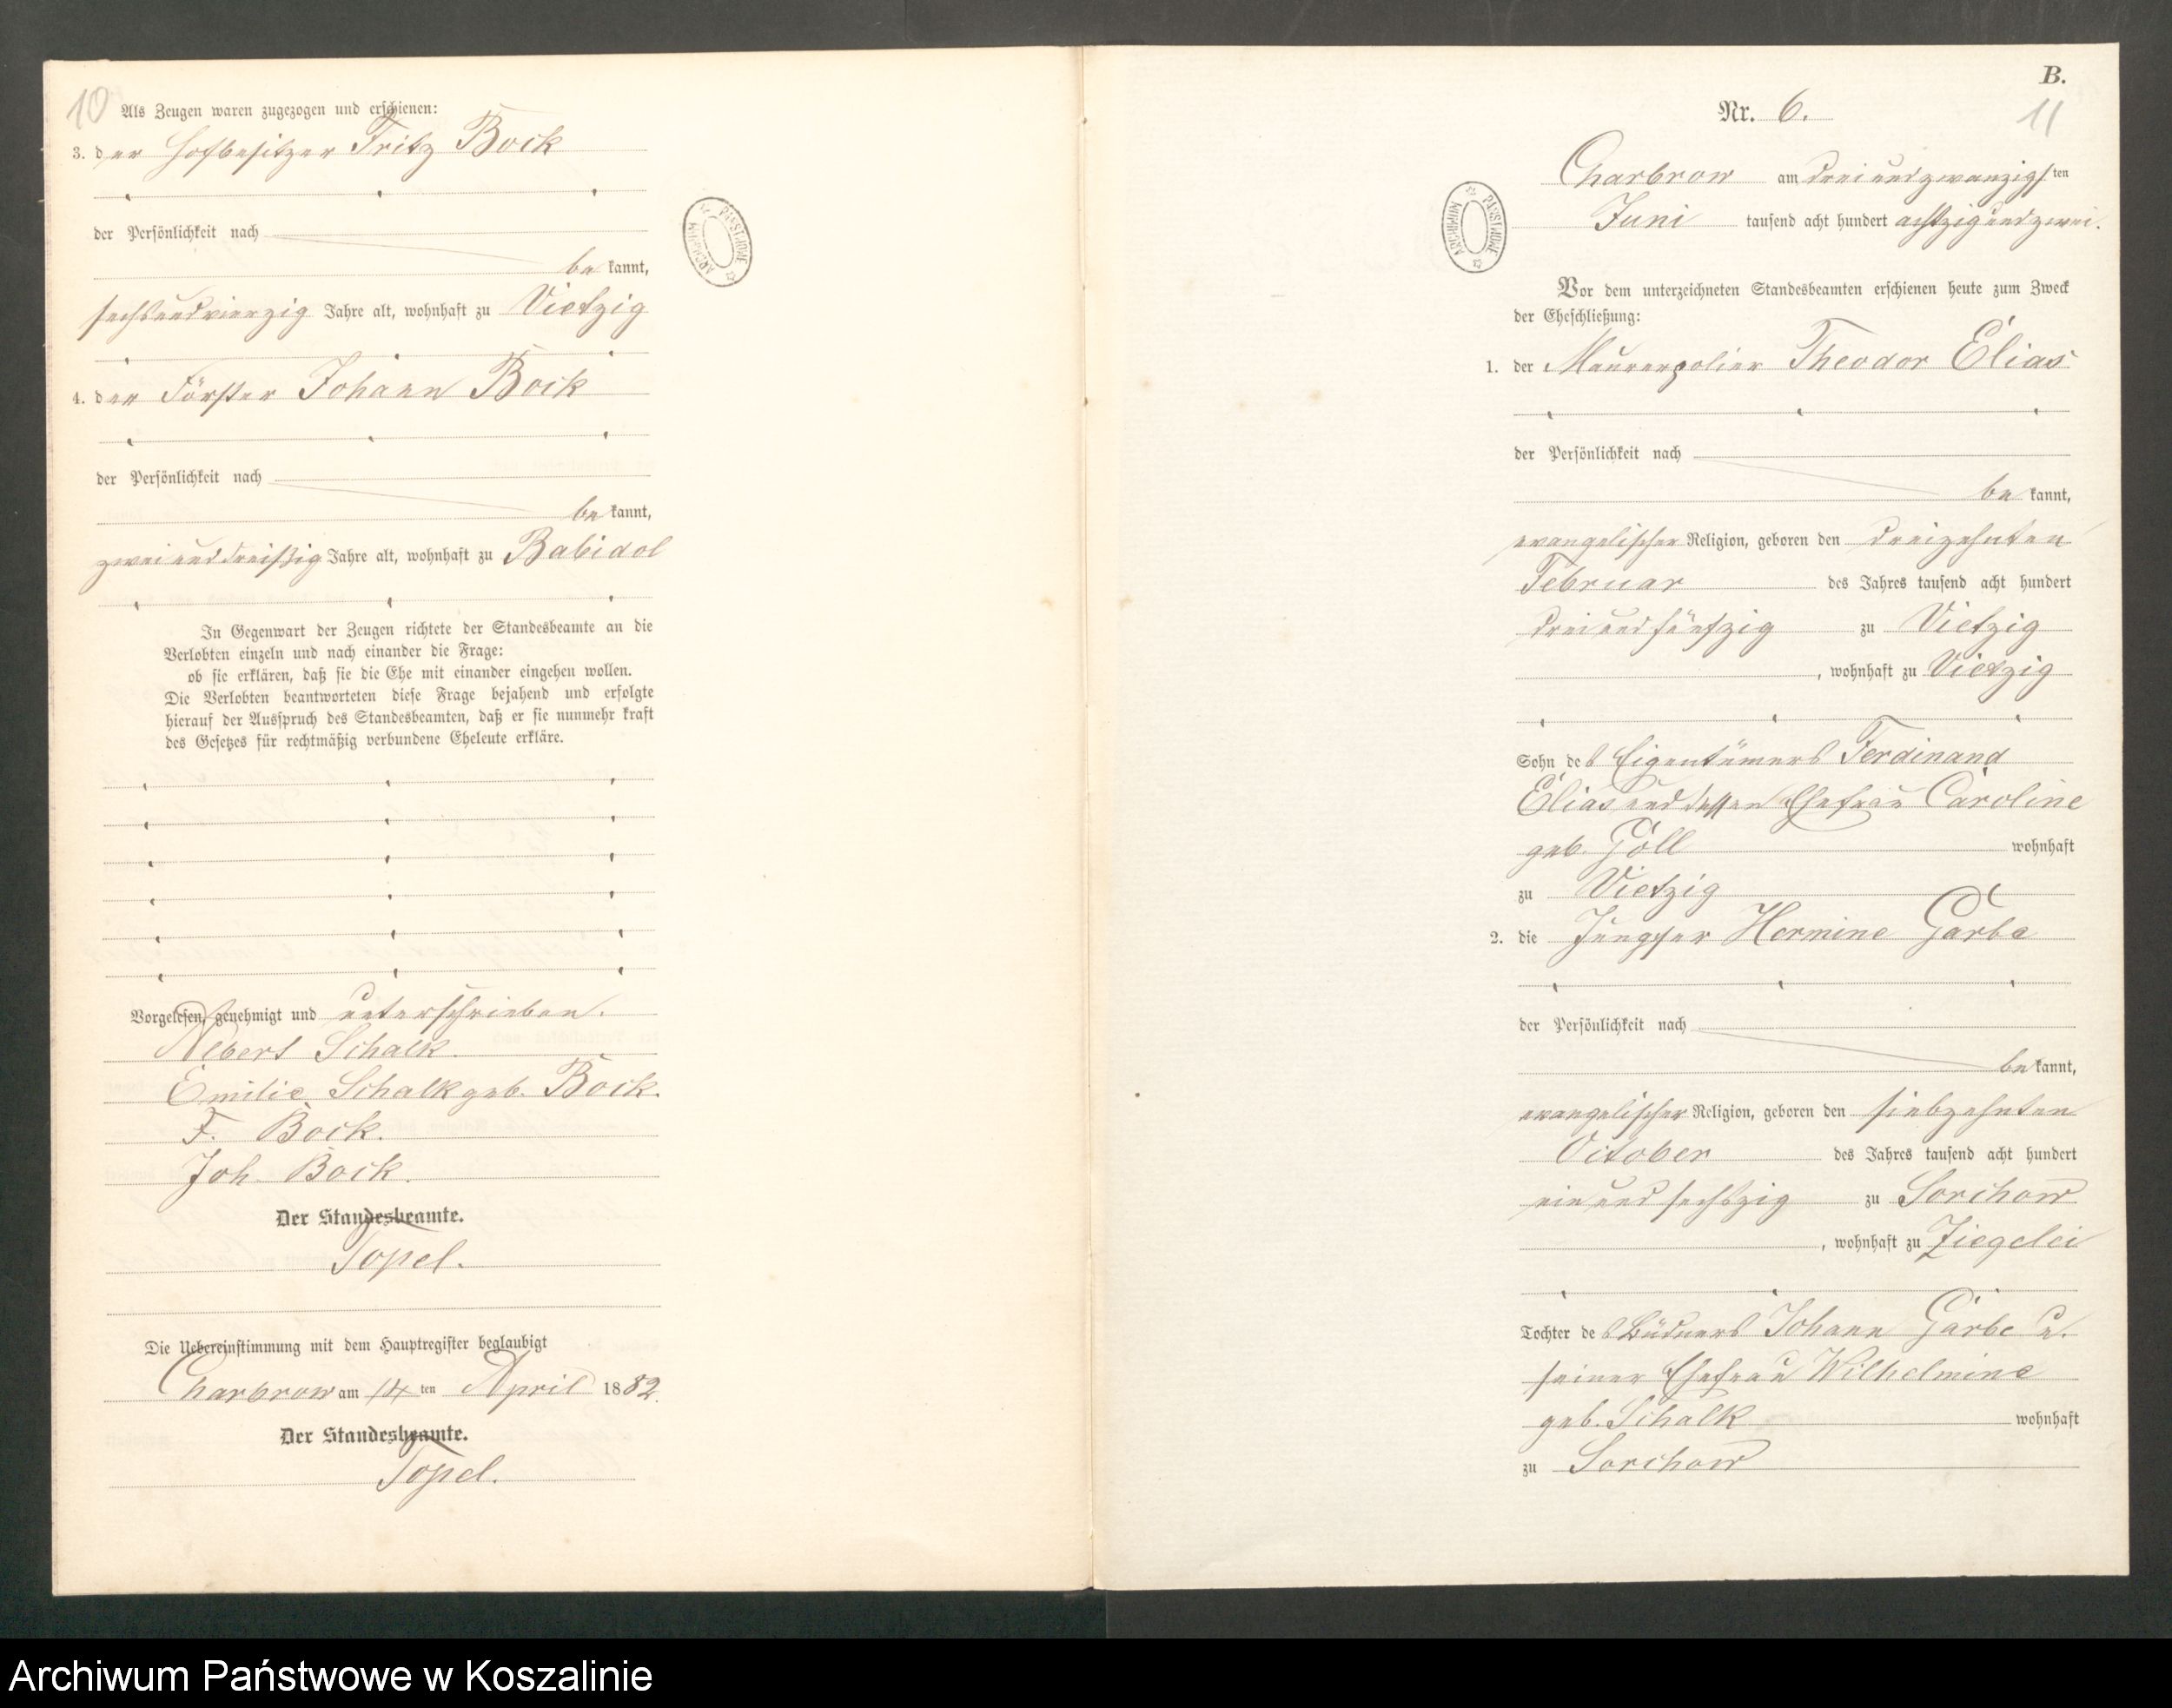 10
Als Zeugen waren zugezogen und erschienen:
3. der Hofbesitzer Fritz Bock
der Persönlichkeit nach
be kannt,
sechsundvierzig Jahre alt, wohnhaft zu Vietzig
4. der Förster Johann Bock
der Persönlichkeit nach
be kannt,
zweiunddreißig Jahre alt, wohnhaft zu Babidol
In Gegenwart der Zeugen richtete der Standesbeamte an die
Verlobten einzeln und nach einander die Frage:
ob sie erklären, daß sie die Ehe mit einander eingehen wollen.
Die Verlobten beantworteten diese Frage bejahend und erfolgte
hierauf der Ausspruch des Standesbeamten, daß er sie nunmehr kraft
des Gesetzes für rechtmäßig verbundene Eheleute erkläre.
Vorgelesen, genehmigt und unterschrieben.
Albert Schalk.
Emilie Schalk geb. Bock.
F. Bock.
Joh. Bock.
Der Standesbeamte.
Topel.
Die Uebereinstimmung mit dem Hauptregister beglaubigt
Charbrow am 14 ten April 1882.
Der Standesbeamte.
Topel.
ARCHIWUM PAŃSTWOWE
B.
Nr. 6.
11
Charbrow am dreiundzwanzigsten
Juni tausend acht hundert achtzigundzwei.
ARCHIWUM PAŃSTWOWE
Vor dem unterzeichneten Standesbeamten erschienen heute zum Zweck
der Eheschließung:
1. der Maurerpolier Theodor Elias
der Persönlichkeit nach
be kannt,
evangelischer Religion, geboren den dreizehnten
Februar des Jahres tausend acht hundert
dreiundfünfzig zu Vietzig
, wohnhaft zu Vietzig
Sohn des Eigentümers Ferdinand
Elias und dessen Ehefrau Caroline
geb. Göll wohnhaft
zu Vietzig
2. die Jungfer Hermine Garbe
der Persönlichkeit nach
be kannt,
evangelischer Religion, geboren den siebzehnten
October des Jahres tausend acht hundert
einundsechszig zu Sorchow
, wohnhaft zu Ziegelei
Tochter des Büdners Johann Garbe u.
seiner Ehefrau Wilhelmine
geb. Schalk wohnhaft
zu Sorchow
Archiwum Państwowe w Koszalinie